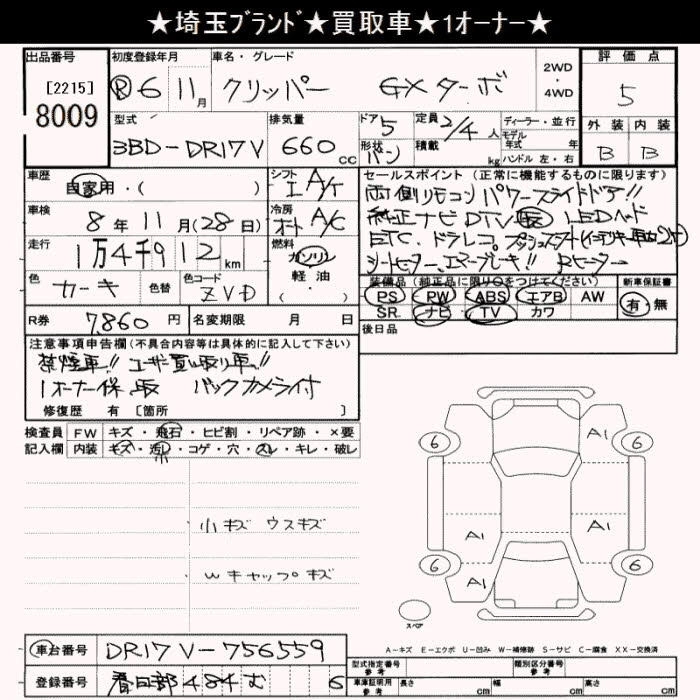 ★埼玉ブランド★買取車★1オーナー★
出品番号
[2215]
8009
初度登録年月
R6 11月
車名・グレード
クリッパー GXターボ
2WD
・
4WD
評価点
5
外装 内装
B B
型式
3BD-DR17V
排気量
660cc
ドア 5
形状 バン
定員 2/4人
積載 kg
ディーラー・並行
モデル
年式 年
ハンドル 左・右
車歴
自家用・( )
シフト
I A/T
車検
8年11月(28日)
冷房
オート A/C
走行
1万4千912km
燃料
ガソリン
軽油
・( )
色
カーキ
色替
色コード
ZVD
セールスポイント (正常に機能するものに限ります)
両側リモコンパワースライドドア!!
純正ナビDTV LEDヘッド
ETC.ドラレコ.プッシュスタート
シートヒーター.エマブレーキ!! Rヒーター
装備品(純正品に限り○をつけてください)
PS PW ABS エアB AW
SR ナビ TV カワ
新車保証書
有・無
後日品
R券
7860円
名変期限 月 日
注意事項申告欄(不具合内容等は具体的に記入して下さい)
禁煙車!! ユーザー買い取り車!!
1オーナー 保、取 バックカメラ付
修復歴 有 [箇所 ]
検査員 FW キズ・飛石・ヒビ割・リペア跡・×要
記入欄 内装 キズ・汚レ・コゲ・穴・スレ・キレ・破レ
小キズ ウスキズ
Wキャップキズ
6 A1 6
A1 A1
6 A1 6
スペア
A-キズ E-エクボ U-凹み W-補修跡 S-サビ C-腐食 XX-交換済
車台番号
DR17V-756559
登録番号
春日部 484 む 6
型式指定番号
参考
類別区分番号
参考
車庫証明用
参考
長さ cm
幅 cm
高さ cm